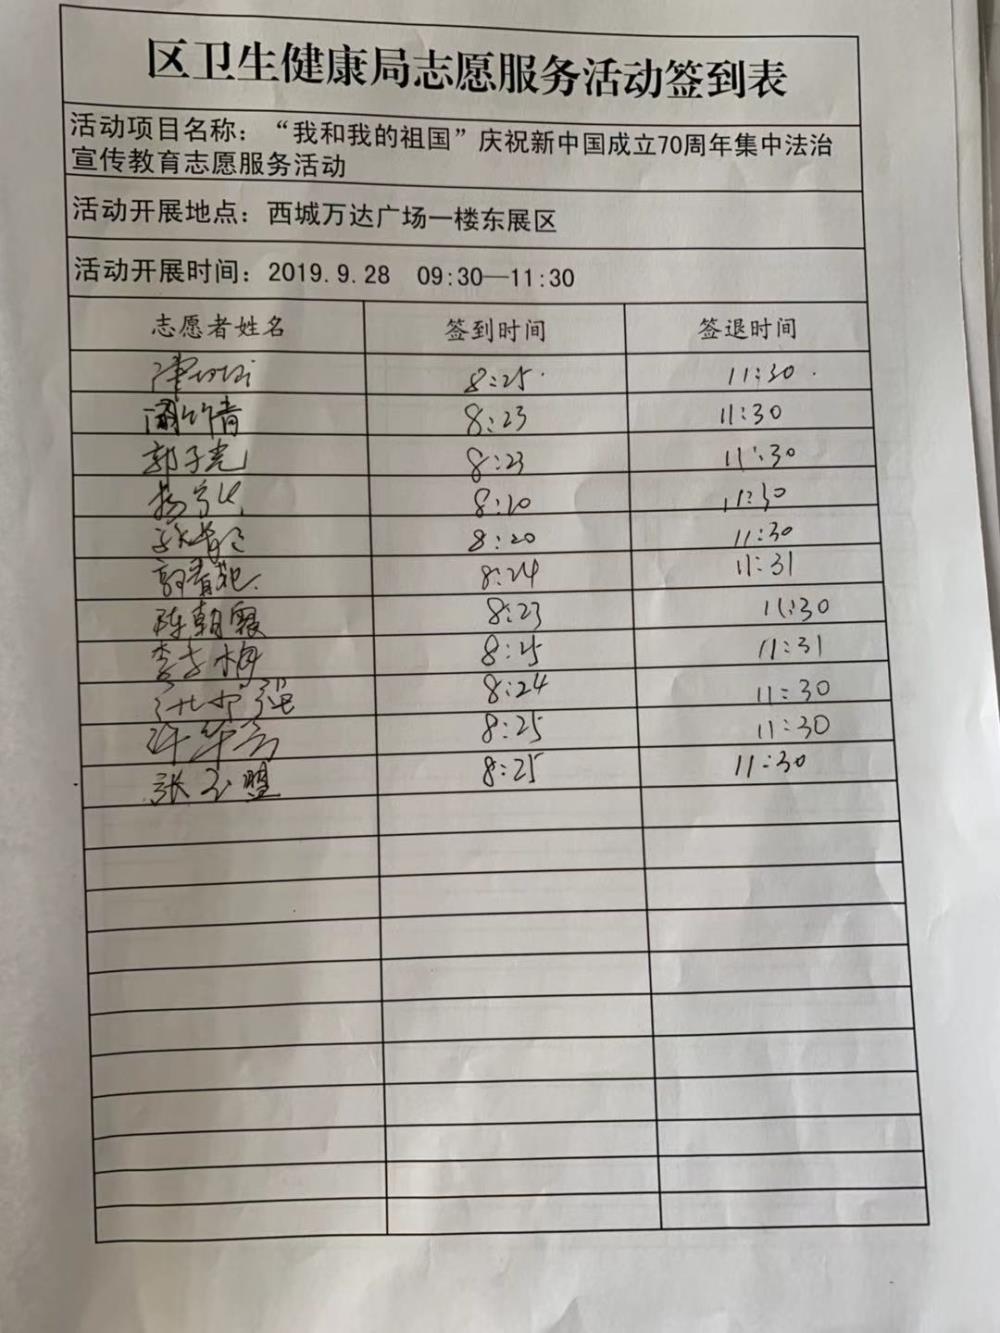 区卫生健康局志愿服务活动签到表
活动项目名称：“我和我的祖国”庆祝新中国成立70周年集中法治
宣传教育志愿服务活动
活动开展地点：西城万达广场一楼东展区
活动开展时间：2019.9.28 09:30—11:30
志愿者姓名 签到时间 签退时间
8:25 11:30
竹青 8:23 11:30
郭子亮 8:23 11:30
杨 8:10 11:30
8:20 11:30
郭春艳 8:24 11:31
陈朝霞 8:23 11:30
李冬梅 8:25 11:31
强 8:24 11:30
许华 8:25 11:30
张玉盟 8:25 11:30